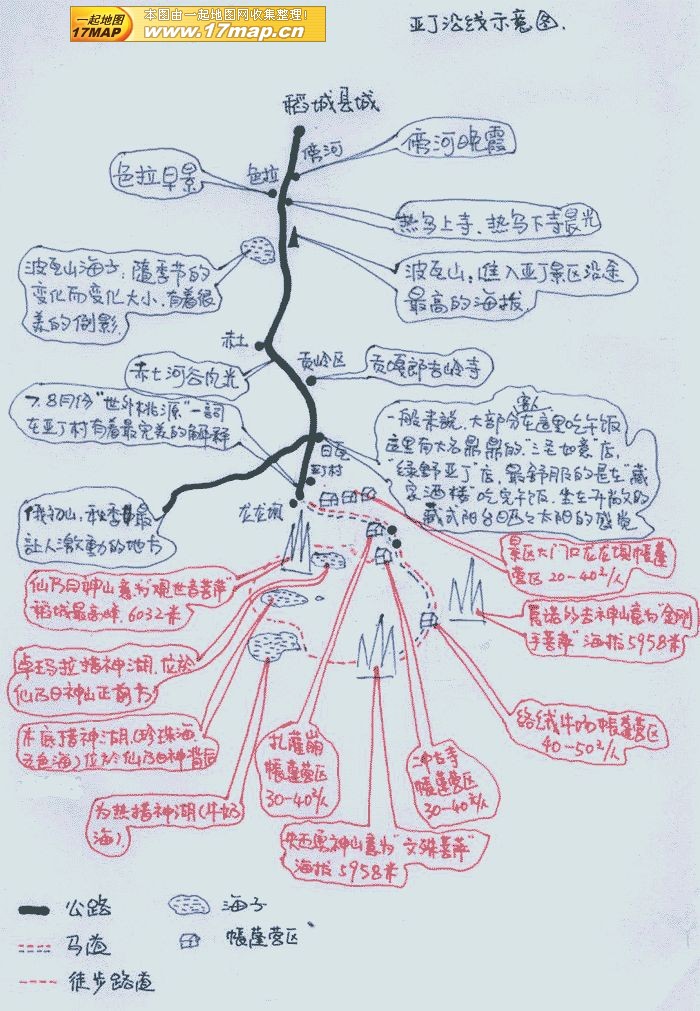 一起地图
17MAP
本图由一起地图网收集整理!
www.17map.cn
亚丁沿线示意图.
稻城县城
傍河
傍河晚霞
色拉
色拉早景
热乌上寺、热乌下寺晨光
波瓦山海子:随季节的
变化而变化大小.有着很
美的倒影.
波瓦山:进入亚丁景区沿途
最高的海拔.
赤土
赤土河谷肉光
贡岭区
贡嘎郎吉岭寺
7.8月份"世外桃源"一詞
在亚丁村有着最完美的解释
客人
一般来説,大部分在這里吃午饭
這里有大名鼎鼎的"三毛如意"店,
绿野亚丁店,最舒服的是在"藏
家酒楼"吃完午饭,坐在开放的
藏式阳台晒太阳的感觉
日瓦
亚丁村
俄初山,秋季最
让人激動的地方
龙龙坝
景区大门口龙龙坝帳蓬
营区 20-40元/人
仙乃日神山意为"观世音菩萨"
稻城最高峰.6032米
夏诺多吉神山意为"金刚
手菩萨"海拔5958米
卓玛拉措神湖.位於
仙乃日神山正前方
络绒牛场帳蓬营区
40-50元/人
木底措神湖(珍珠海
五色海)位於仙乃日神背后
扎薩崩
帳蓬营区
30-40元/人
冲古寺
帳蓬营区
30-40元/人
为热措神湖(牛奶
海).
央迈勇神山意为"文殊菩萨"
海拔5958米
公路
海子
马道
帳蓬营区
徒步路道